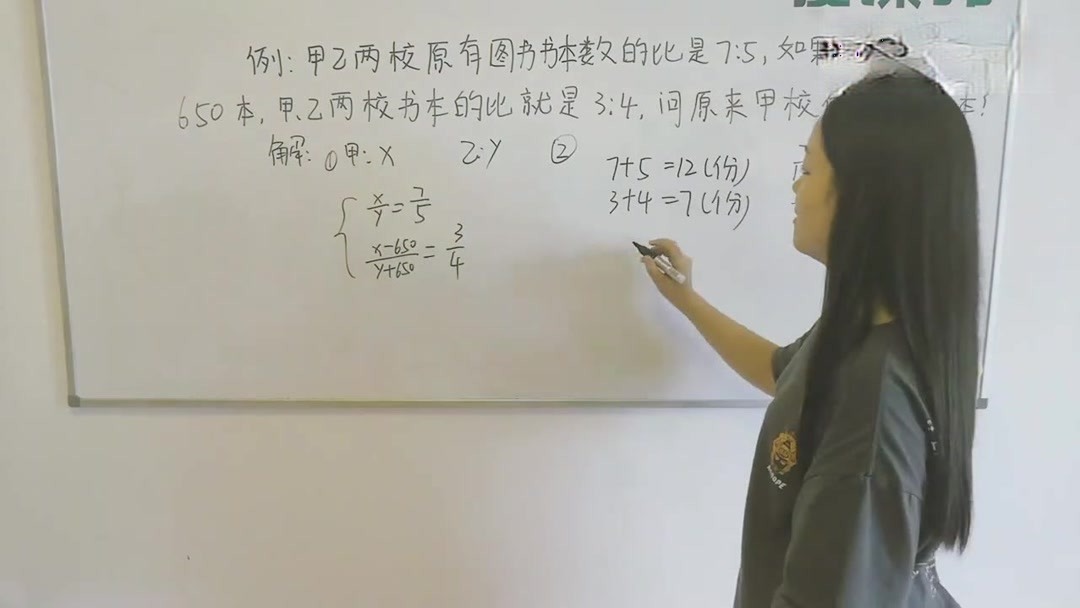 例:甲乙两校原有图书书本数的比是7:5,如果
650本,甲、乙两校书本的比就是3:4,问原来甲校 本?
解: ①甲:x 乙:y ②
7+5=12(份)
3+4=7(份)
x/y=7/5
x-650/y+650=3/4